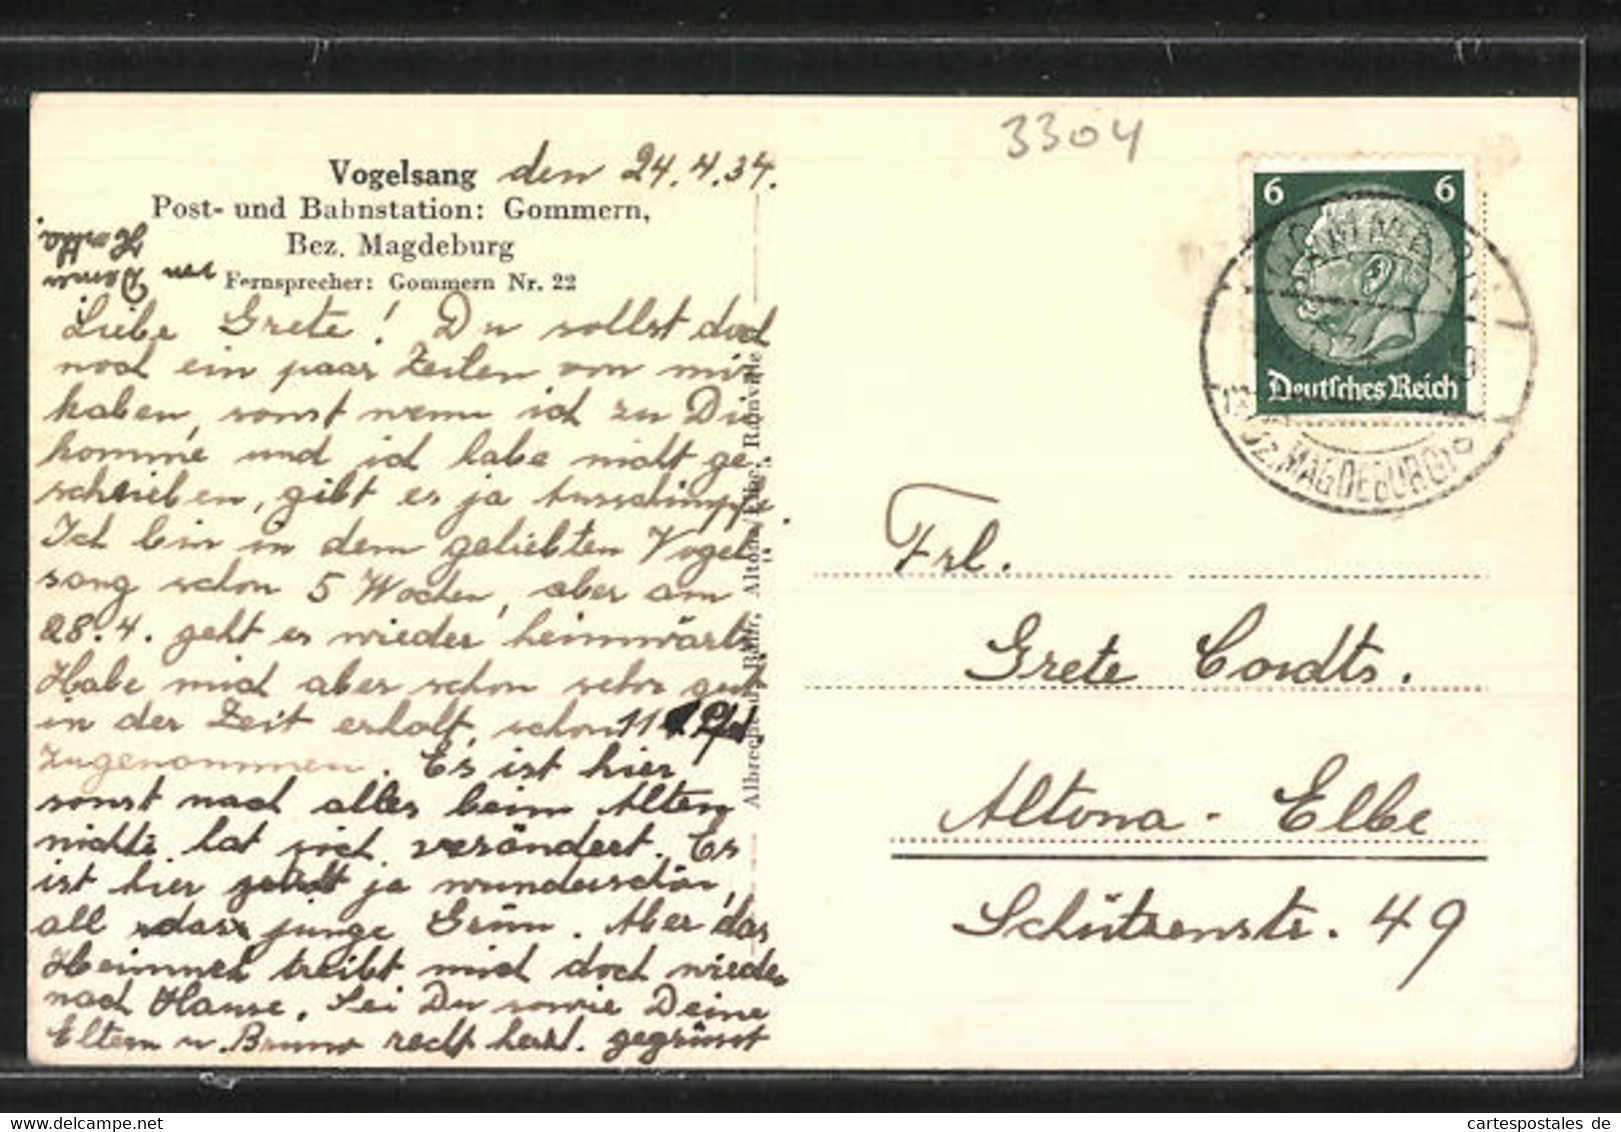 3304
Vogelsang den 24.4.34.
Post- und Bahnstation: Gommern,
Bez. Magdeburg
Fernsprecher: Gommern Nr. 22
Liebe Grete! Du sollst doch
noch ein paar Zeilen von mir
haben, sonst wenn ich zu Dir
komme und ich habe nicht ge-
schrieben, gibt es ja
Ich bin in dem geliebten Vogel-
sang schon 5 Wochen, aber am
28.4. geht es wieder heimwärts.
Habe mich aber schon sehr gut
in der Zeit erholt, schon 11 Pfd.
zugenommen. Es ist hier
sonst noch alles beim Alten
nichts hat sich verändert. Es
ist hier jetzt ja wunderschön,
all das junge Grün. Aber das
Heimweh treibt mich doch wieder
nach Hause. Sei Du sowie Deine
Eltern u. Bruno recht herzl. gegrüsst
von
Deiner
Hertha.
6 6
Deutsches Reich
GOMMERN
Bz. MAGDEBURG
Frl.
Grete Cordts.
Altona-Elbe
Schützenstr. 49
www.cartespostales.de